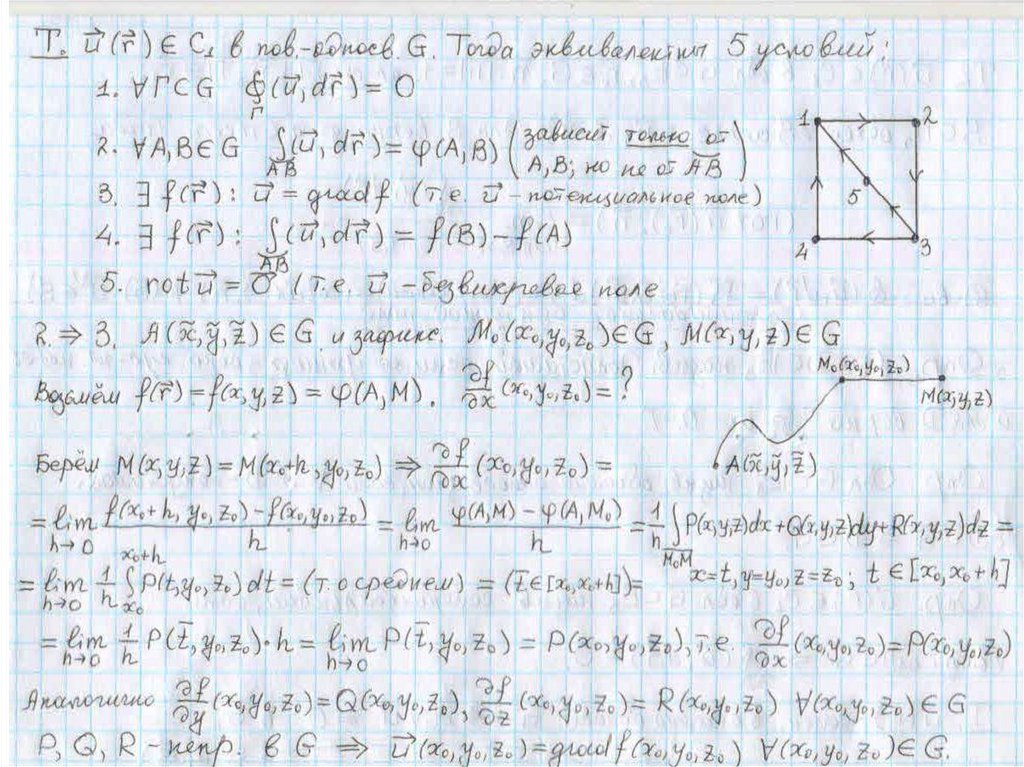 Т. u⃗(r⃗) ∈ C₁ в пов.-односв. G. Тогда эквивалентны 5 условий:
1. ∀Γ⊂G ∮_Γ(u⃗, dr⃗) = 0
2. ∀A,B∈G ∫_{AB}(u⃗, dr⃗) = φ(A,B) (зависит только от A,B; но не от AB)
3. ∃ f(r⃗): u⃗ = grad f (т.е. u⃗ - потенциальное поле)
4. ∃ f(r⃗): ∫_{AB}(u⃗, dr⃗) = f(B) - f(A)
5. rot u⃗ = 0⃗ (т.е. u⃗ - безвихревое поле
1 2
5
4 3
2. ⇒ 3. A(x̃,ỹ,z̃) ∈ G и зафикс. M₀(x₀,y₀,z₀)∈G, M(x,y,z)∈G
Возьмём f(r⃗) = f(x,y,z) = φ(A,M). ∂f/∂x (x₀,y₀,z₀) = ?
M₀(x₀,y₀,z₀)
M(x,y,z)
A(x̃,ỹ,z̃)
Берём M(x,y,z) = M(x₀+h, y₀,z₀) ⇒ ∂f/∂x (x₀,y₀,z₀) =
= lim_{h→0} (f(x₀+h, y₀,z₀) - f(x₀,y₀,z₀))/h = lim_{h→0} (φ(A,M) - φ(A,M₀))/h = 1/h ∫_{M₀M} P(x,y,z)dx + Q(x,y,z)dy + R(x,y,z)dz =
x=t, y=y₀, z=z₀; t ∈ [x₀, x₀+h]
= lim_{h→0} 1/h ∫_{x₀}^{x₀+h} P(t,y₀,z₀) dt = (т. о среднем) = (t̄∈[x₀,x₀+h]) =
= lim_{h→0} 1/h P(t̄,y₀,z₀)·h = lim_{h→0} P(t̄,y₀,z₀) = P(x₀,y₀,z₀), т.е. ∂f/∂x (x₀,y₀,z₀) = P(x₀,y₀,z₀)
Аналогично ∂f/∂y (x₀,y₀,z₀) = Q(x₀,y₀,z₀), ∂f/∂z (x₀,y₀,z₀) = R(x₀,y₀,z₀) ∀(x₀,y₀,z₀) ∈ G
P, Q, R - непр. в G ⇒ u⃗(x₀,y₀,z₀) = grad f(x₀,y₀,z₀) ∀(x₀,y₀,z₀) ∈ G.